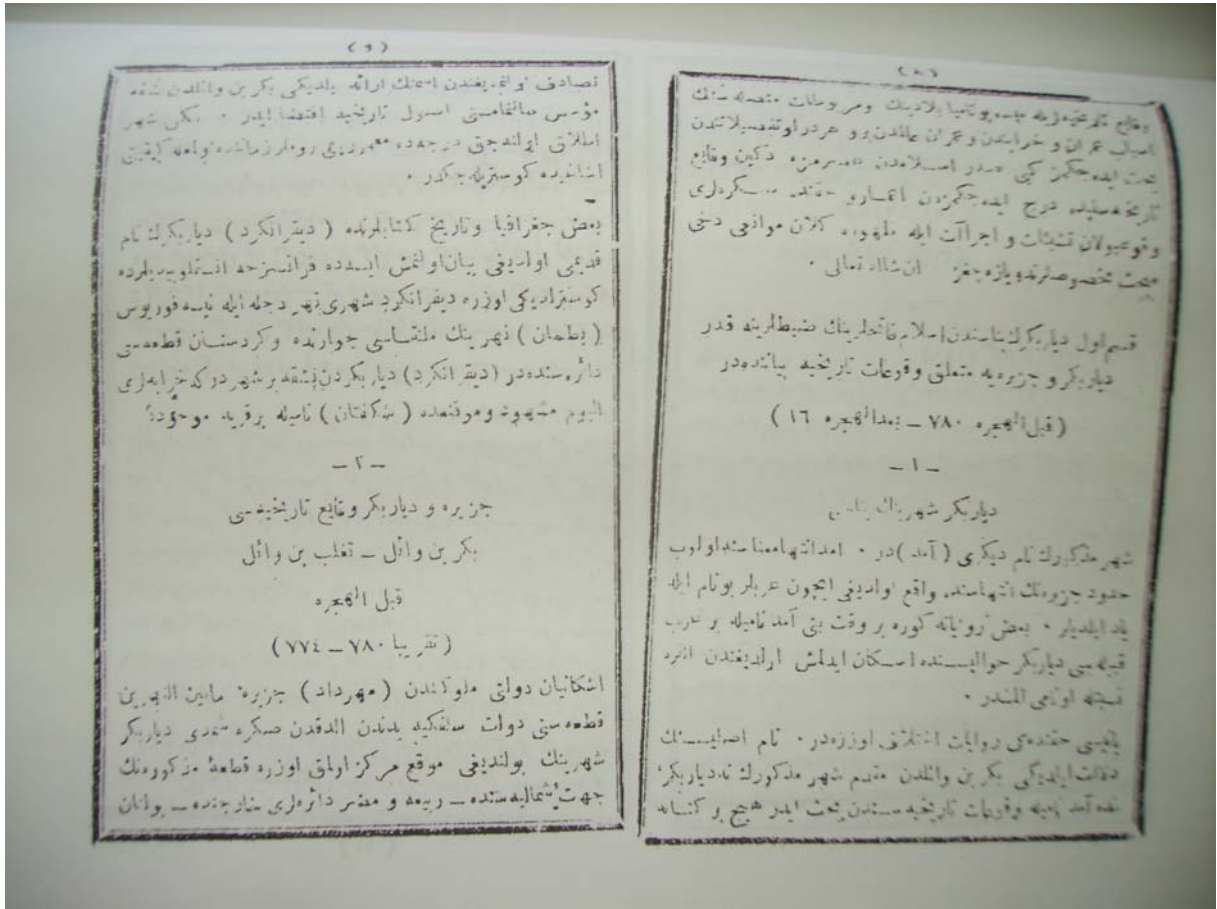 (٨)
وقايع تاريخيه‌لرله مسوپوتاميا بلادينك ومربوطات متصله‌سنك
اسباب عمران و خرابندن وعمران عالمدن برو هر در او تفصيلاتندن
بحث ايده‌جكمز كبى صدر اسلامدن عصرمزه دكين وقايع
تاريخيه‌سنيده درج ايده‌جكمزدن
وقوعبولان تشبثات و اجراآت ايله كلان مواقعى دخى
مبحث مخصوصلرنده يازه‌جغز ان شاالله تعالى ·
قسم اول دياربكرك بناسندن اسلام فاتحلرينك ضبطلرينه قدر
دياربكر و جزيره‌يه متعلق وقوعات تاريخيه بياننده‌در
(قبل الهجره ٧٨٠ ــ بعدالهجره ١٦)
ــ ١ ــ
دياربكر شهرينك بناسى
شهر مذكورك نام ديكرى (آمد) در · امد انتها معناسنه اولوب
حدود جزيره‌نك انتهاسنده واقع اولديغى ايچون عربلر بو نام ايله
ياد ايلديلر · بعض رواياته كوره بر وقت بنى آمد ناميله بر عرب
قبيله‌سى دياربكر حواليسنده اسكان ايدلمش اولديغندن انلره
نسبتله او نامى المشدر ·
بانيسى حقنده‌كى روايات اختلاق اوززه‌در · نام اصليسنك
دلالت ايلديكى بكر بن وائلدن مقدم شهر مذكورك نه دياربكر
نه‌ده آمد وقوعات تاريخيه‌سندن بحث ايدر هيچ بر كتابه
(٩)
تصادف اولنمديغندن اسمنك ارائه يلديكى بكر بن وائلدن شقه
مؤسس صانلمامسى اصول تاريخيه اقتضا ايدر · لكن شهر
اطلاق اولنه‌جق درجه‌ده معموريتى روملر زماننده اولمه كيفيتى
اشاغيده كوستريله‌جكدر ·
بعض جغرافيا وتاريخ كتابلرنده (ديقرانكرد) دياربكرك نام
قديمى اولديغى بيان اولنمش ايسه‌ده فرانسزجه انسقلوپديلرده
كوسترلديكى اوزره ديقرانكرد شهرى نهر دجله ايله نيسه فوريوس
(بطمان) نهرينك ملتقاسى جوارنده وكردستان قطعه‌سى
دائره‌سنده‌در (ديقرانكرد) دياربكردن بشقه بر شهردر كه خرابه‌لرى
اليوم مشهود وموقعنده (شكفتان) ناميله بر قريه موجوددر
ــ ٢ ــ
جزيره و دياربكر وقايع تاريخيه‌سى
بكر بن وائل ــ تغلب بن وائل
قبل الهجره
(تقريبا ٧٨٠ ــ ٧٧٤)
اشكانيان دولتى ملوكندن (مهرداد) جزيره مابين النهرين
قطعه‌سنى دولت سلفكيه يدندن الدقدن صكره شمدى دياربكر
شهرينك بولنديغى موقع مركز اولمق اوزره قطعهٔ مذكوره‌نك
جهت شماليه‌سنده ــ ربيعه و مضر دائره‌لرى خارجنده ــ بولنان